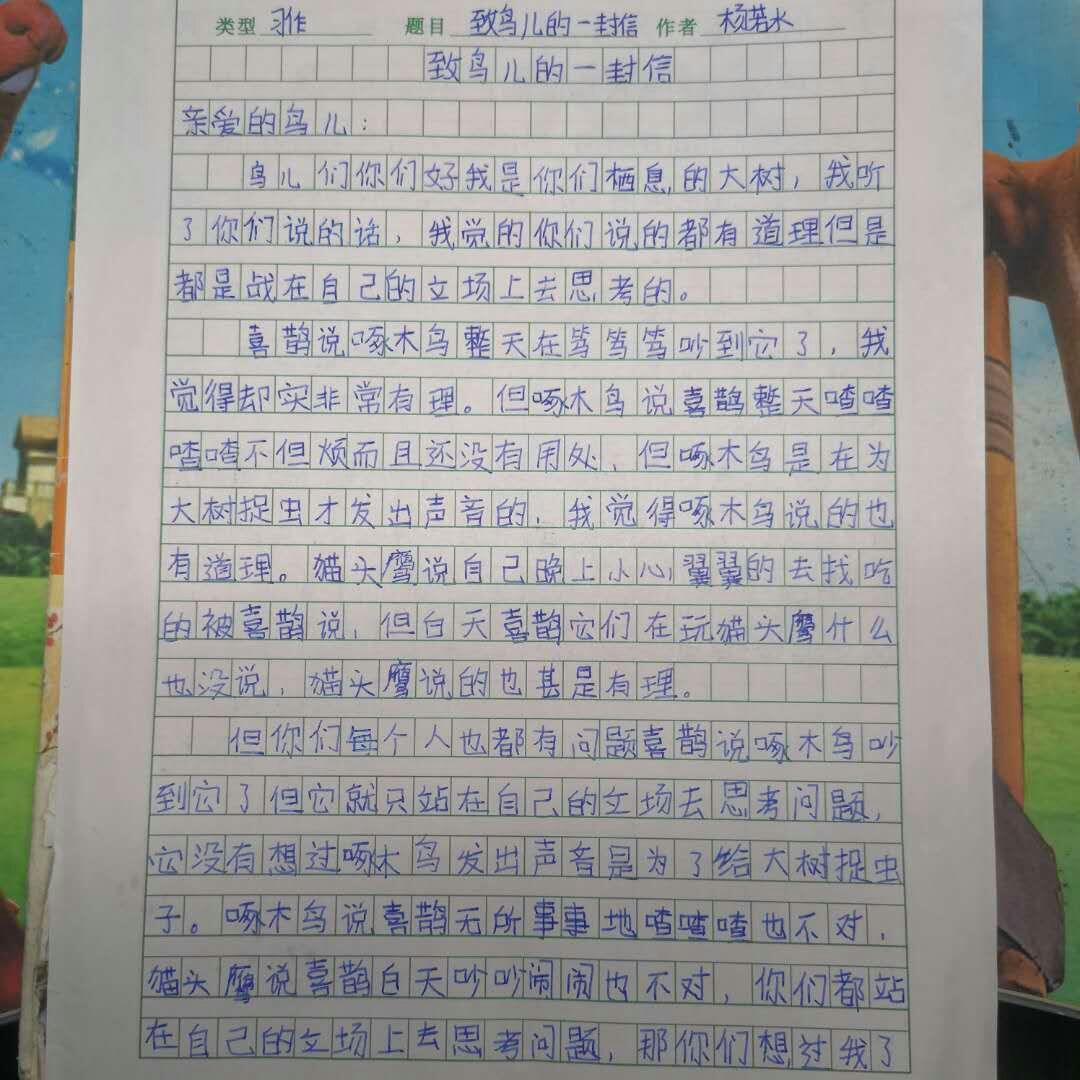 类型 习作 题目 致鸟儿的一封信 作者 杨若水
致鸟儿的一封信
亲爱的鸟儿：
鸟儿们你们好我是你们栖息的大树，我听
了你们说的话，我觉的你们说的都有道理但是
都是战在自己的立场上去思考的。
喜鹊说啄木鸟整天在笃笃笃吵到它了，我
觉得却实非常有理。但啄木鸟说喜鹊整天喳喳
喳喳不但烦而且还没有用处，但啄木鸟是在为
大树捉虫才发出声音的，我觉得啄木鸟说的也
有道理。猫头鹰说自己晚上小心翼翼的去找吃
的被喜鹊说，但白天喜鹊它们在玩猫头鹰什么
也没说，猫头鹰说的也甚是有理。
但你们每个人也都有问题喜鹊说啄木鸟吵
到它了但它就只站在自己的立场去思考问题，
它没有想过啄木鸟发出声音是为了给大树捉虫
子。啄木鸟说喜鹊无所事事地喳喳喳也不对，
猫头鹰说喜鹊白天吵吵闹闹也不对，你们都站
在自己的立场上去思考问题，那你们想过我了